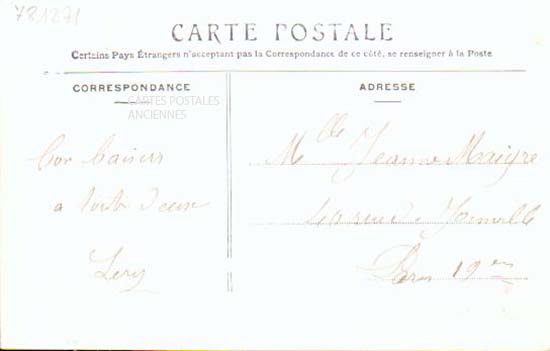 781271
CARTE POSTALE
Certains Pays Étrangers n'acceptent pas la Correspondance de ce côté, se renseigner à la Poste
CORRESPONDANCE
CARTES POSTALES
ANCIENNES
Bon Baisers
a toute deux
ADRESSE
Mlle Jeanne Maigre
rue de Joinville
Paris 19em